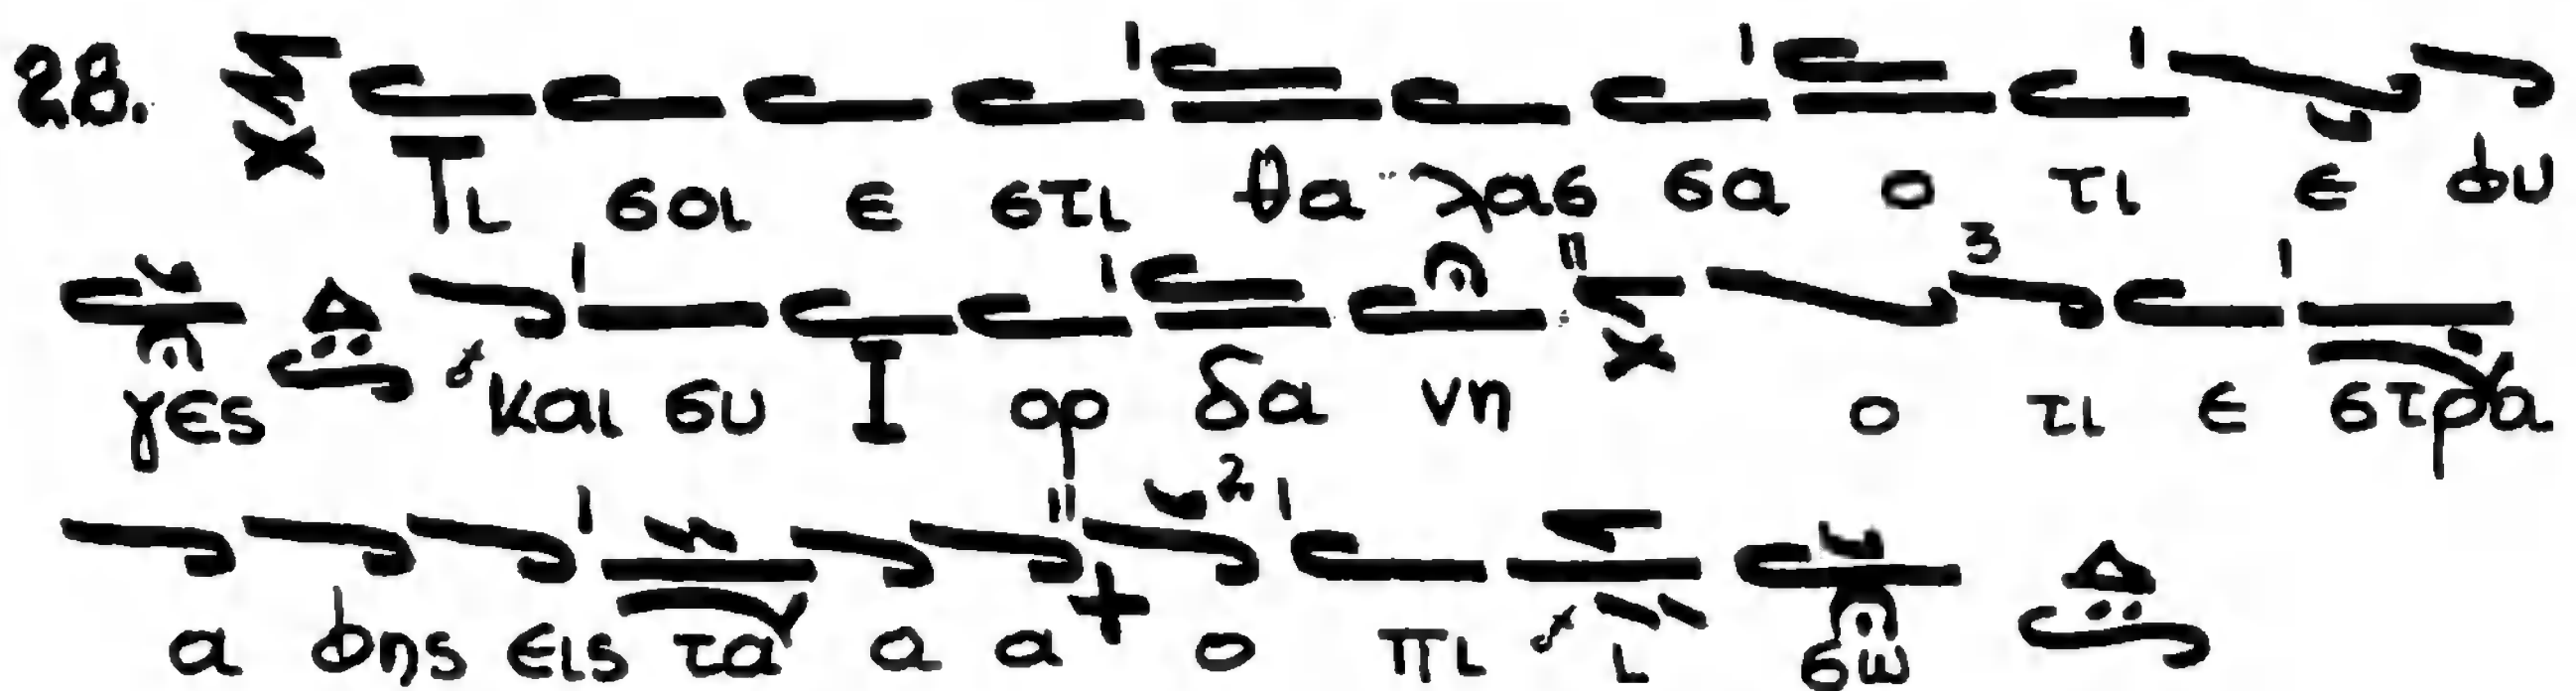 28. Τι σοι ε στι θα λασ σα ο τι ε φυ
γες και συ Ι ορ δα νη ο τι ε στρα
α φης εις τα α α ο πι ι σω